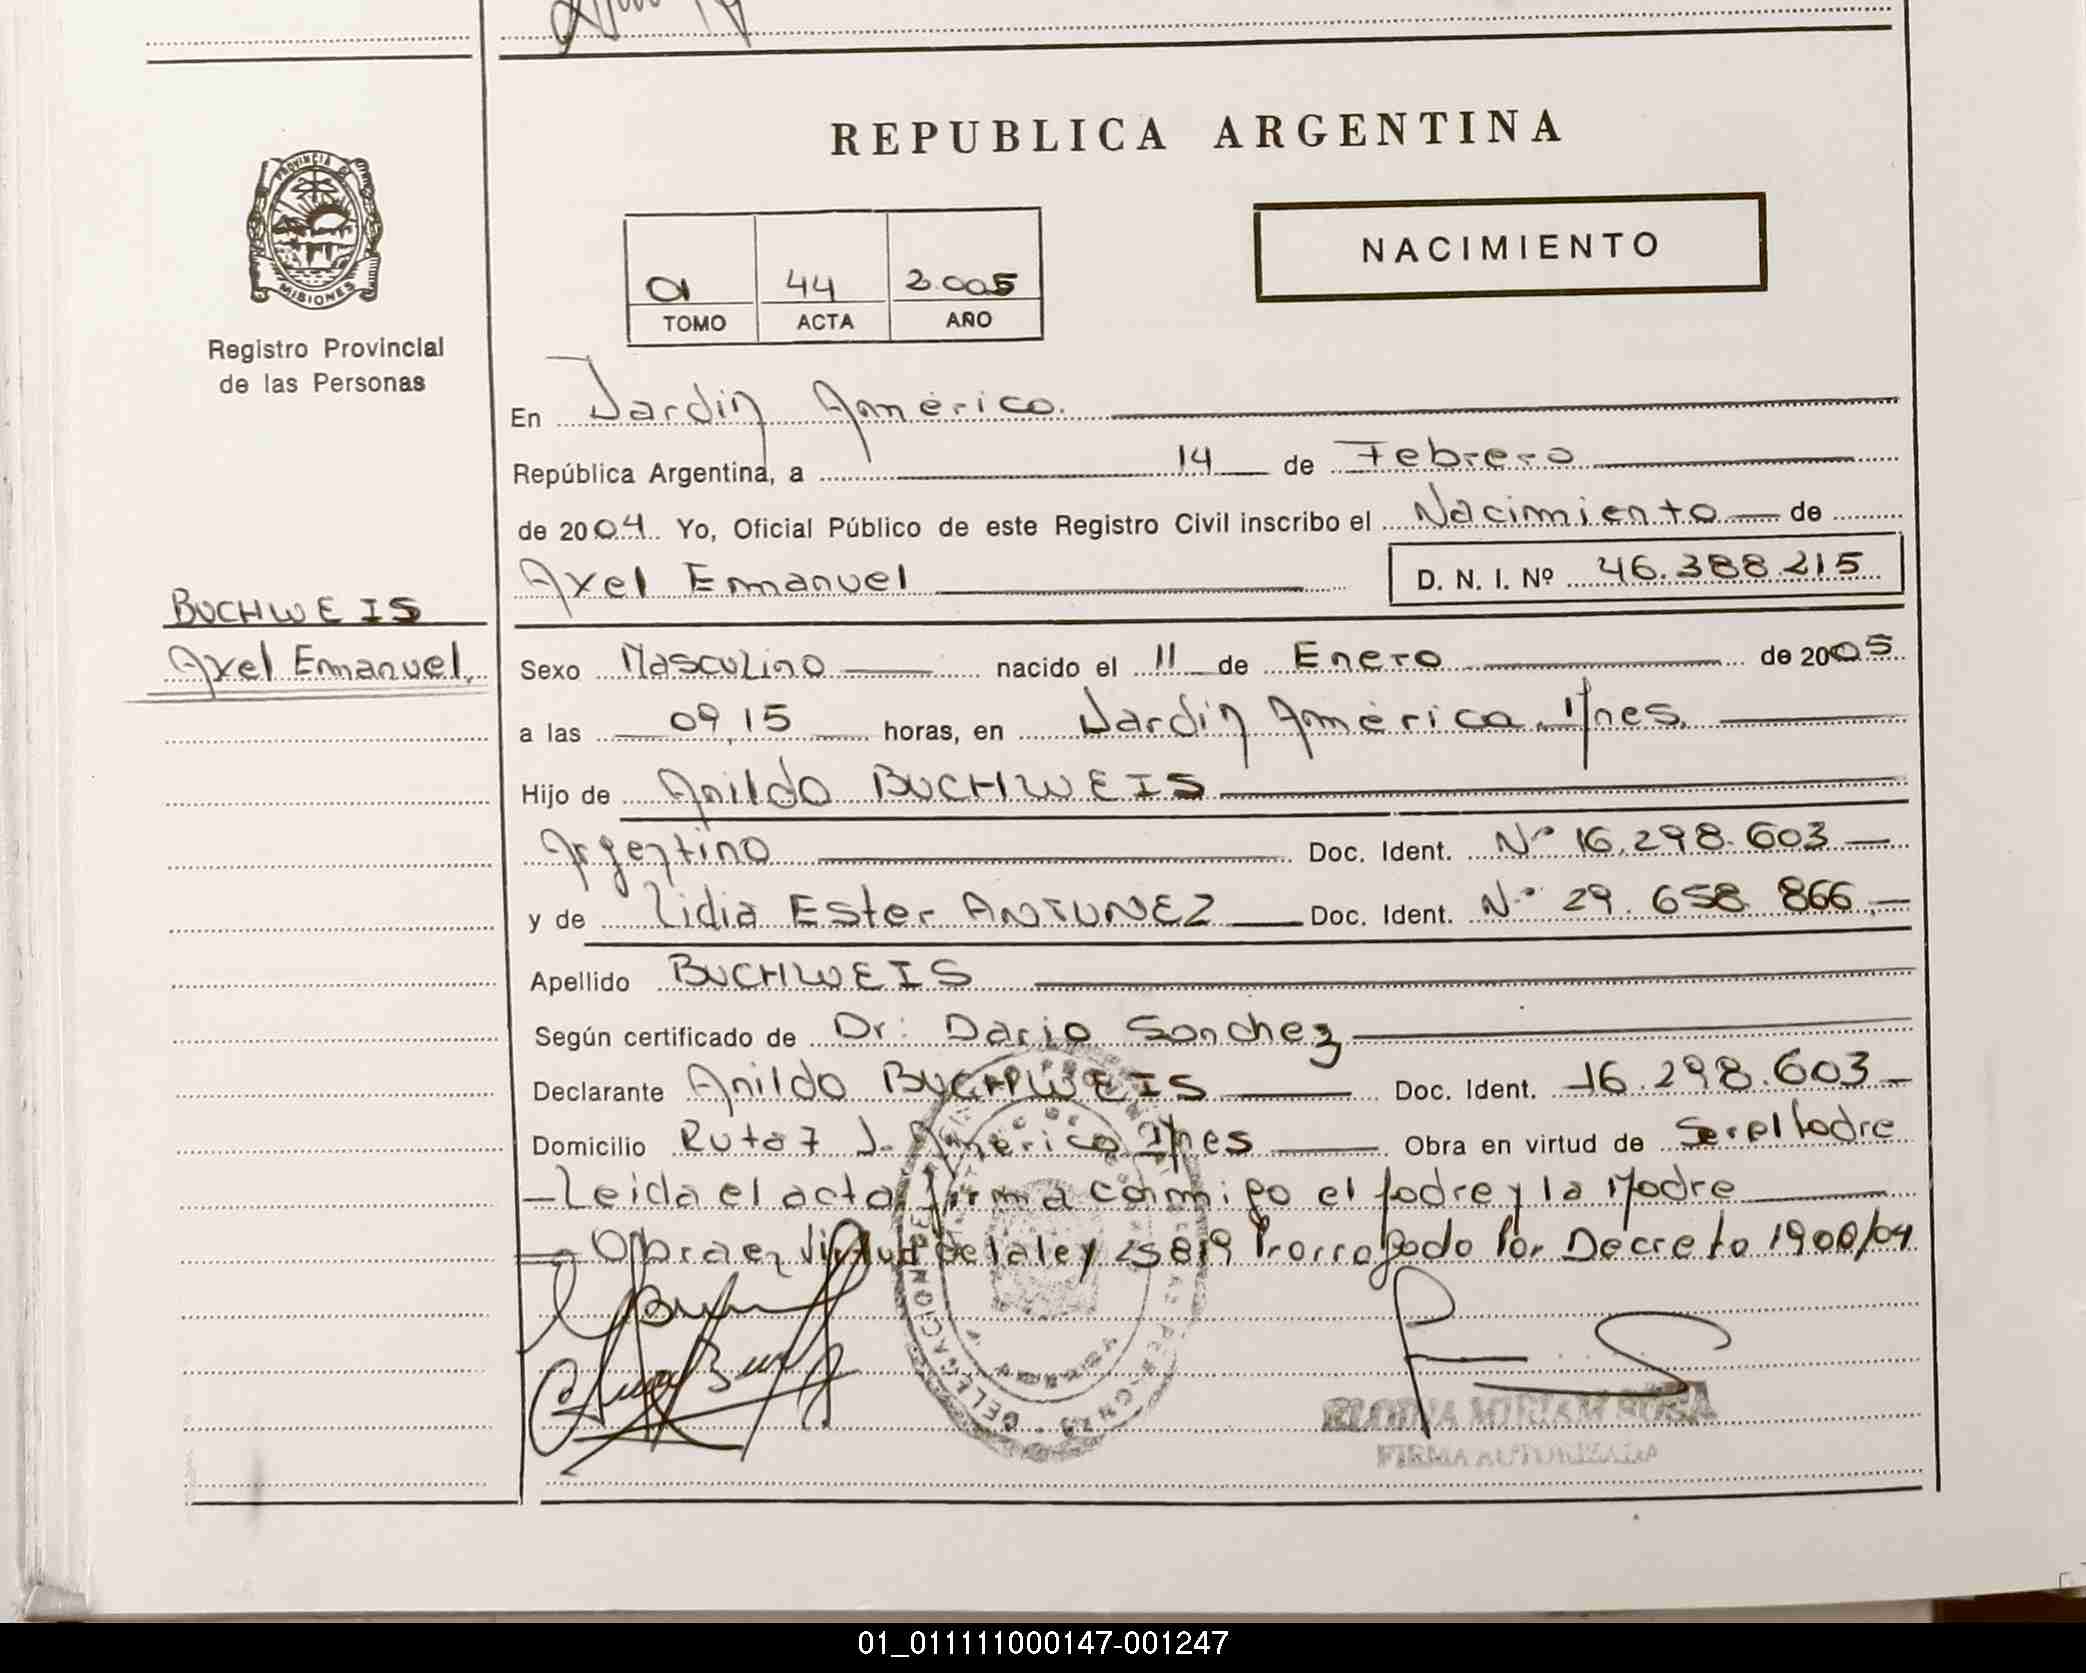 REPUBLICA ARGENTINA
NACIMIENTO
01 44 2.005
TOMO ACTA AÑO
PROVINCIA DE
MISIONES
Registro Provincial
de las Personas
En Jardin América.
República Argentina, a 14 de Febrero
de 2004. Yo, Oficial Público de este Registro Civil inscribo el Nacimiento de
Axel Emanuel D. N. I. Nº 46.388.215
BUCHWEIS
Axel Emanuel.
Sexo Masculino nacido el 11 de Enero de 2005
a las 09,15 horas, en Jardin América. Mnes.
Hijo de Anildo BUCHWEIS
Argentino Doc. Ident. Nº 16.298.603
y de Lidia Ester ANTUNEZ Doc. Ident. Nº 29.658.866.
Apellido BUCHWEIS
Según certificado de Dr: Dario Sanchez
Declarante Anildo BUCHWEIS Doc. Ident. 16.298.603
Domicilio Ruta 7 J. América Mnes Obra en virtud de Ser el Padre
Leida el acta firma conmigo el padre y la Madre
Obra en virtud de la ley 25819 Prorrogado Por Decreto 1900/04
DELEGACION
MIRIAM ROSA
FIRMA AUTORIZADA
01_011111000147-001247